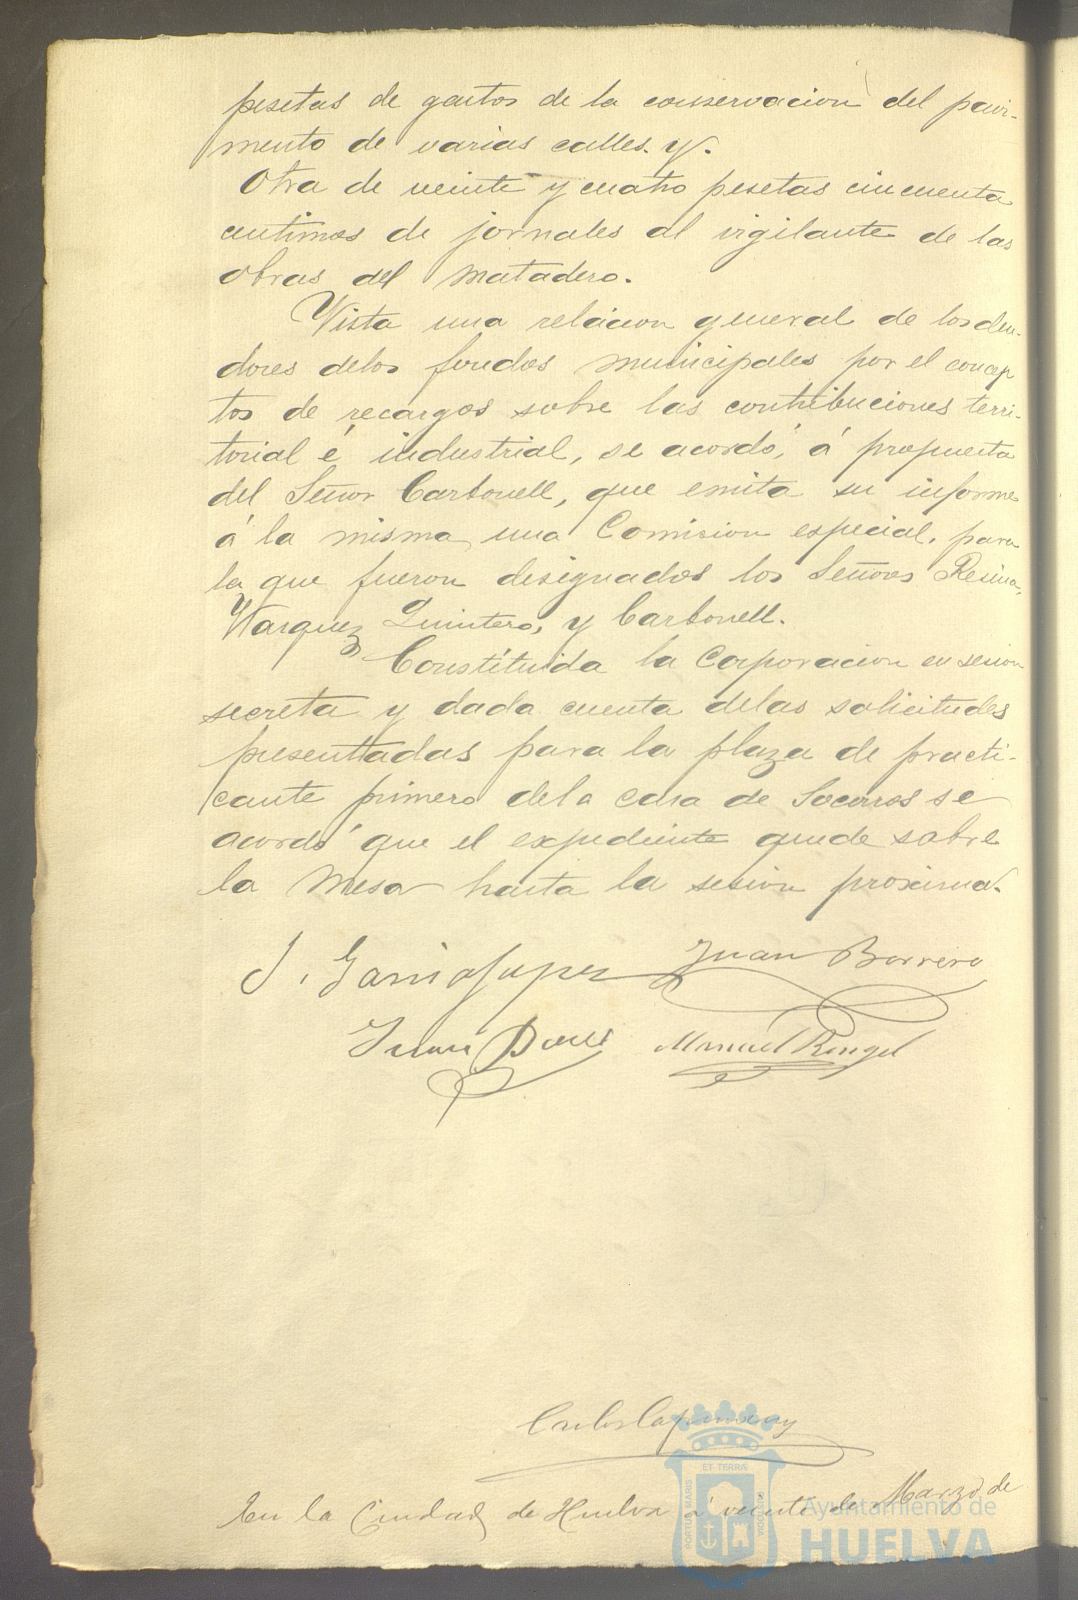 pesetas de gastos de la conservacion del pavi-
mento de varias calles. y.
Otra de veinte y cuatro pesetas cincuenta
centimos de jornales al vigilante de las
obras del matadero.
Vista una relacion general de los deu-
dores delos fondos municipales por el concep
tos de recargos sobre las contribuciones terri-
torial é industrial, se acordó, á propuesta
del Señor Carbonell, que emita su informe
á la misma una Comision especial, para
la que fueron designados los Señores Resina,
Vazquez Quintero, y Carbonell.
Constituida la Corporacion en sesion
secreta y dada cuenta delas solicitudes
presenttadas para la plaza de practi-
cante primero dela casa de Socorros se
acordó que el expediente quede sobre
la mesa hasta la sesion proxima.
J. Garcia Lopez Juan Borrero
Juan Manuel Rengel
En la Ciudad de Huelva á veinte de Marzo de
PORTUS MARIS ET TERRÆ CUSTODIA
Ayuntamiento de
HUELVA